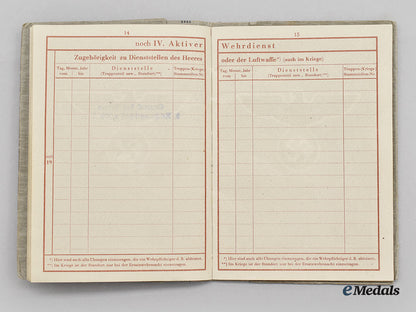 14
noch IV. Aktiver
Zugehörigkeit zu Dienststellen des Heeres
Tag, Monat, Jahr
vom bis
Dienststelle
(Truppenteil usw., Standort**)
Truppen-(Kriegs-)
Stammrollen-Nr.
19
*) Hier sind auch alle Übungen einzutragen, die ein Wehrpflichtiger d. B. ableistet.
**) Im Kriege ist der Standort nur bei der Ersatzwehrmacht einzutragen.
15
Wehrdienst
oder der Luftwaffe*) (auch im Kriege)
Tag, Monat, Jahr
vom bis
Dienststelle
(Truppenteil usw., Standort**)
Truppen-(Kriegs-)
Stammrollen-Nr.
*) Hier sind auch alle Übungen einzutragen, die ein Wehrpflichtiger d. B. ableistet.
**) Im Kriege ist der Standort nur bei der Ersatzwehrmacht einzutragen.
eMedals